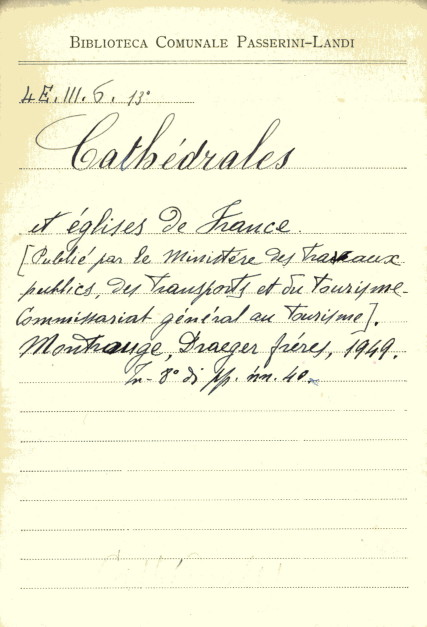 BIBLIOTECA COMUNALE PASSERINI-LANDI
4E. III. 6. 13°
Cathédrales
et églises de France.
[Publié par le Ministére des Travaux
publics, des Transports et du Tourisme-
Commissariat général au Tourisme].
Montrouge, Draeger fréres, 1949.
In-8° di pp. nn. 40.